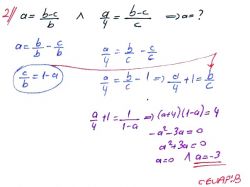 2// a = (b-c)/b ∧ a/4 = (b-c)/c ⟹ a = ?
a = b/b - c/b a/4 = b/c - c/c
c/b = 1-a a/4 = b/c - 1 ⟹ a/4 + 1 = b/c
a/4 + 1 = 1/(1-a) ⟹ (a+4)(1-a) = 4
-a² - 3a = 0
a² + 3a = 0
a = 0 ∧ a = -3
CEVAP:B